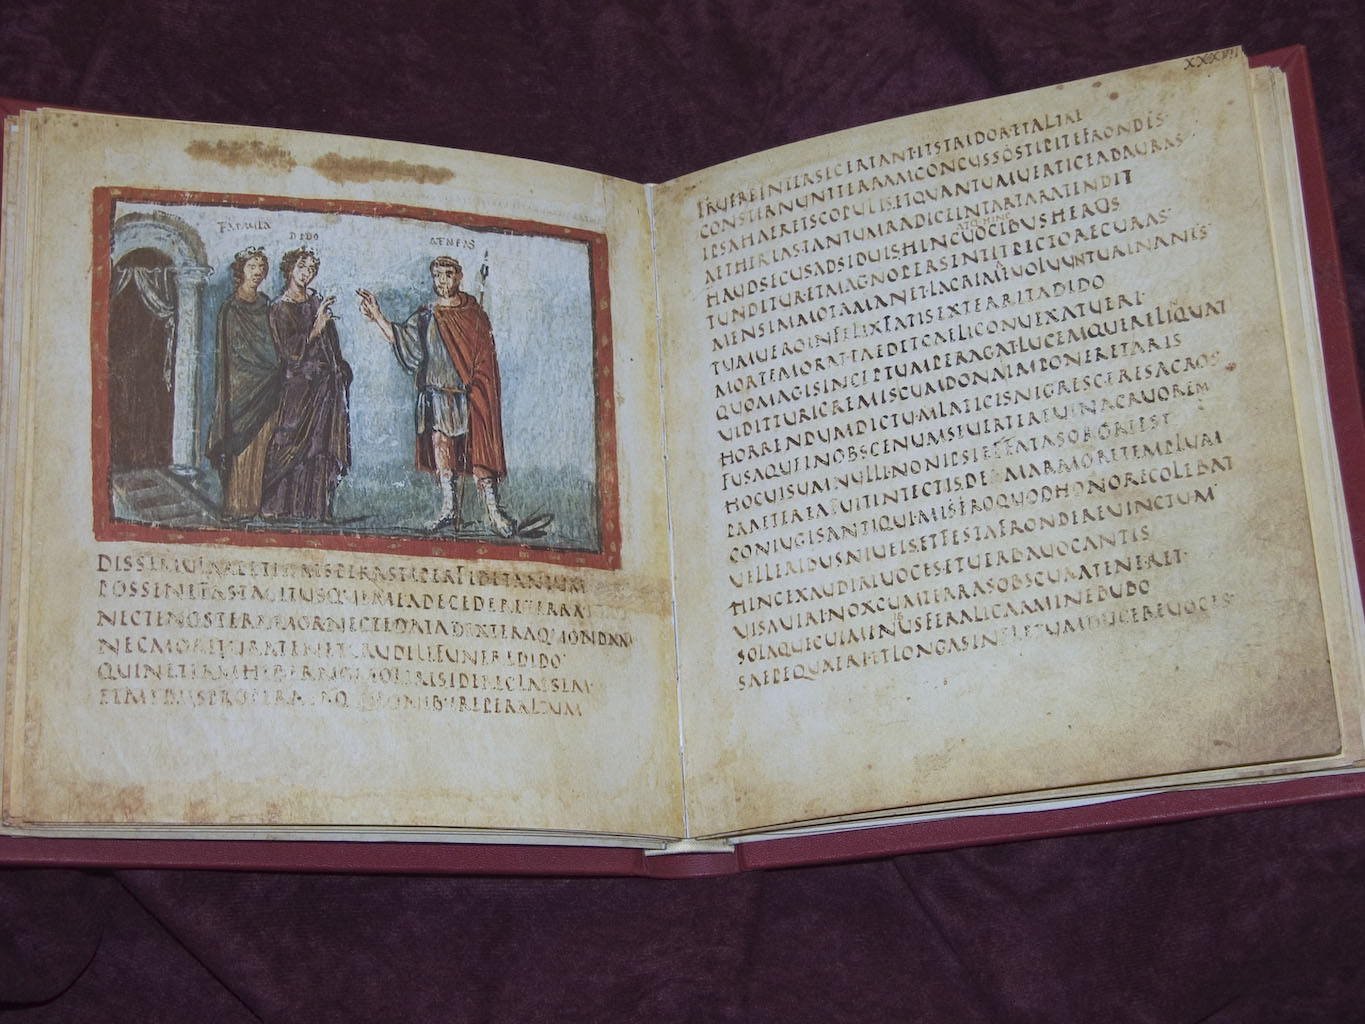 FAMULA DIDO AENEAS
DISSIMULAREETIAMSPERASTIPERFIDETANTUM
POSSENEFASTACITUSQUEMEADECEDERETERRA
NECTENOSTERAMORNECTEDATADEXTERAQUONDAM
NECMORITURATENETCRUDELIFUNEREDIDO
QUINETIAMHIBERNOMOLIRISSIDERECLASSEM
XXXVII
ERUEREINTERSECERTANTITSTRIDORETALTAE
CONSTERNUNTTERRAMCONCUSSOSTIPITEFRONDES·
IPSAHAERETSCOPULISETQUANTUMUERTICEADAURAS
AETHERIASTANTUMRADICEINTARTARATENDIT
ATQHINC
HAUDSECUSADSIDUISHINCUOCIBUSHEROS
TUNDITURETMAGNOPERSENTITPECTORECURAS·
MENSIMMOTAMANETLACRIMAEUOLUUNTURINANES·
TUMUEROINFELIXFATISEXTERRITADIDO
MORTEMORATTAEDETCAELICONUEXATUERI·
QUOMAGISINCEPTUMPERAGATLUCEMQUERELIQUAT
UIDITTURICREMISCUMDONAIMPONERETARIS
HORRENDUMDICTUMLATICISNIGRESCERESACROS
FUSAQUEINOBSCENUMSEUERTEREUINACRUOREM
HOCUISUMNULLINONIPSIEFFATASORORIEST
PRAETEREAFUITINTECTISDEMARMORETEMPLUM
CONIUGISANTIQUIMIROQUODHONORECOLEBAT
UELLERIBUSNIUEISETFESTAFRONDEREUINCTUM
HINCEXAUDIRIUOCESETUERBAUOCANTIS
UISAUIRINOXCUMTERRASOBSCURATENERET·
SOLAQUECULMINUSFERALICARMINEBUBO
SAEPEQUAERIETLONGASINFLETUMDUCEREUOCES·